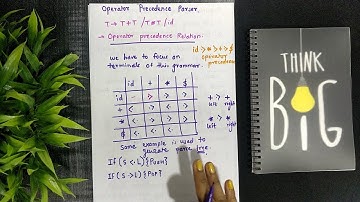 Operator Precedence Parser.
T → T+T / T*T / id
→ Operator precedence Relation.
we have to focus on
terminals of this grammar.
id > * > + > $
operator
precedence
id + * $
id - > > >
+ <· ·> <· ·>
* <· ·> ·> ·>
$ <· <· <·
+ > +
left right
* > *
left right
Same example is used to
generate parse tree
If (S <· L) {Push}
If (S ·> L) {Pop}
THINK
BIG